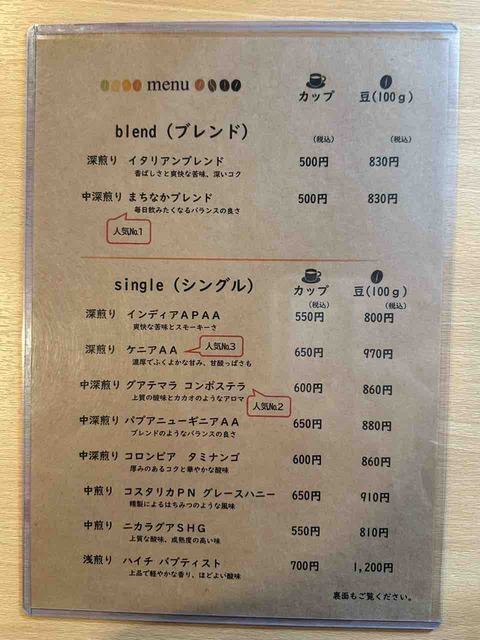 menu
カップ 豆(100g)
blend (ブレンド)
(税込) (税込)
深煎り イタリアンブレンド 500円 830円
香ばしさと爽快な苦味、深いコク
中深煎り まちなかブレンド 500円 830円
毎日飲みたくなるバランスの良さ
人気№1
single (シングル)
カップ 豆(100g)
(税込) (税込)
深煎り インディアAPAA 550円 800円
爽快な苦味とスモーキーさ
深煎り ケニアAA 650円 970円
人気№3
濃厚でふくよかな甘み、甘酸っぱさも
中深煎り グアテマラ コンポステラ 600円 860円
上質の酸味とカカオのようなアロマ
人気№2
中深煎り パプアニューギニアAA 650円 880円
ブレンドのようなバランスの良さ
中深煎り コロンビア タミナンゴ 600円 860円
厚みのあるコクと華やかな酸味
中煎り コスタリカPN グレースハニー 650円 910円
精製によるはちみつのような風味
中煎り ニカラグアSHG 550円 810円
上質な酸味、成熟度の高い味
浅煎り ハイチ バプティスト 700円 1,200円
上品で軽やかな香り、ほどよい酸味
裏面もご覧ください。